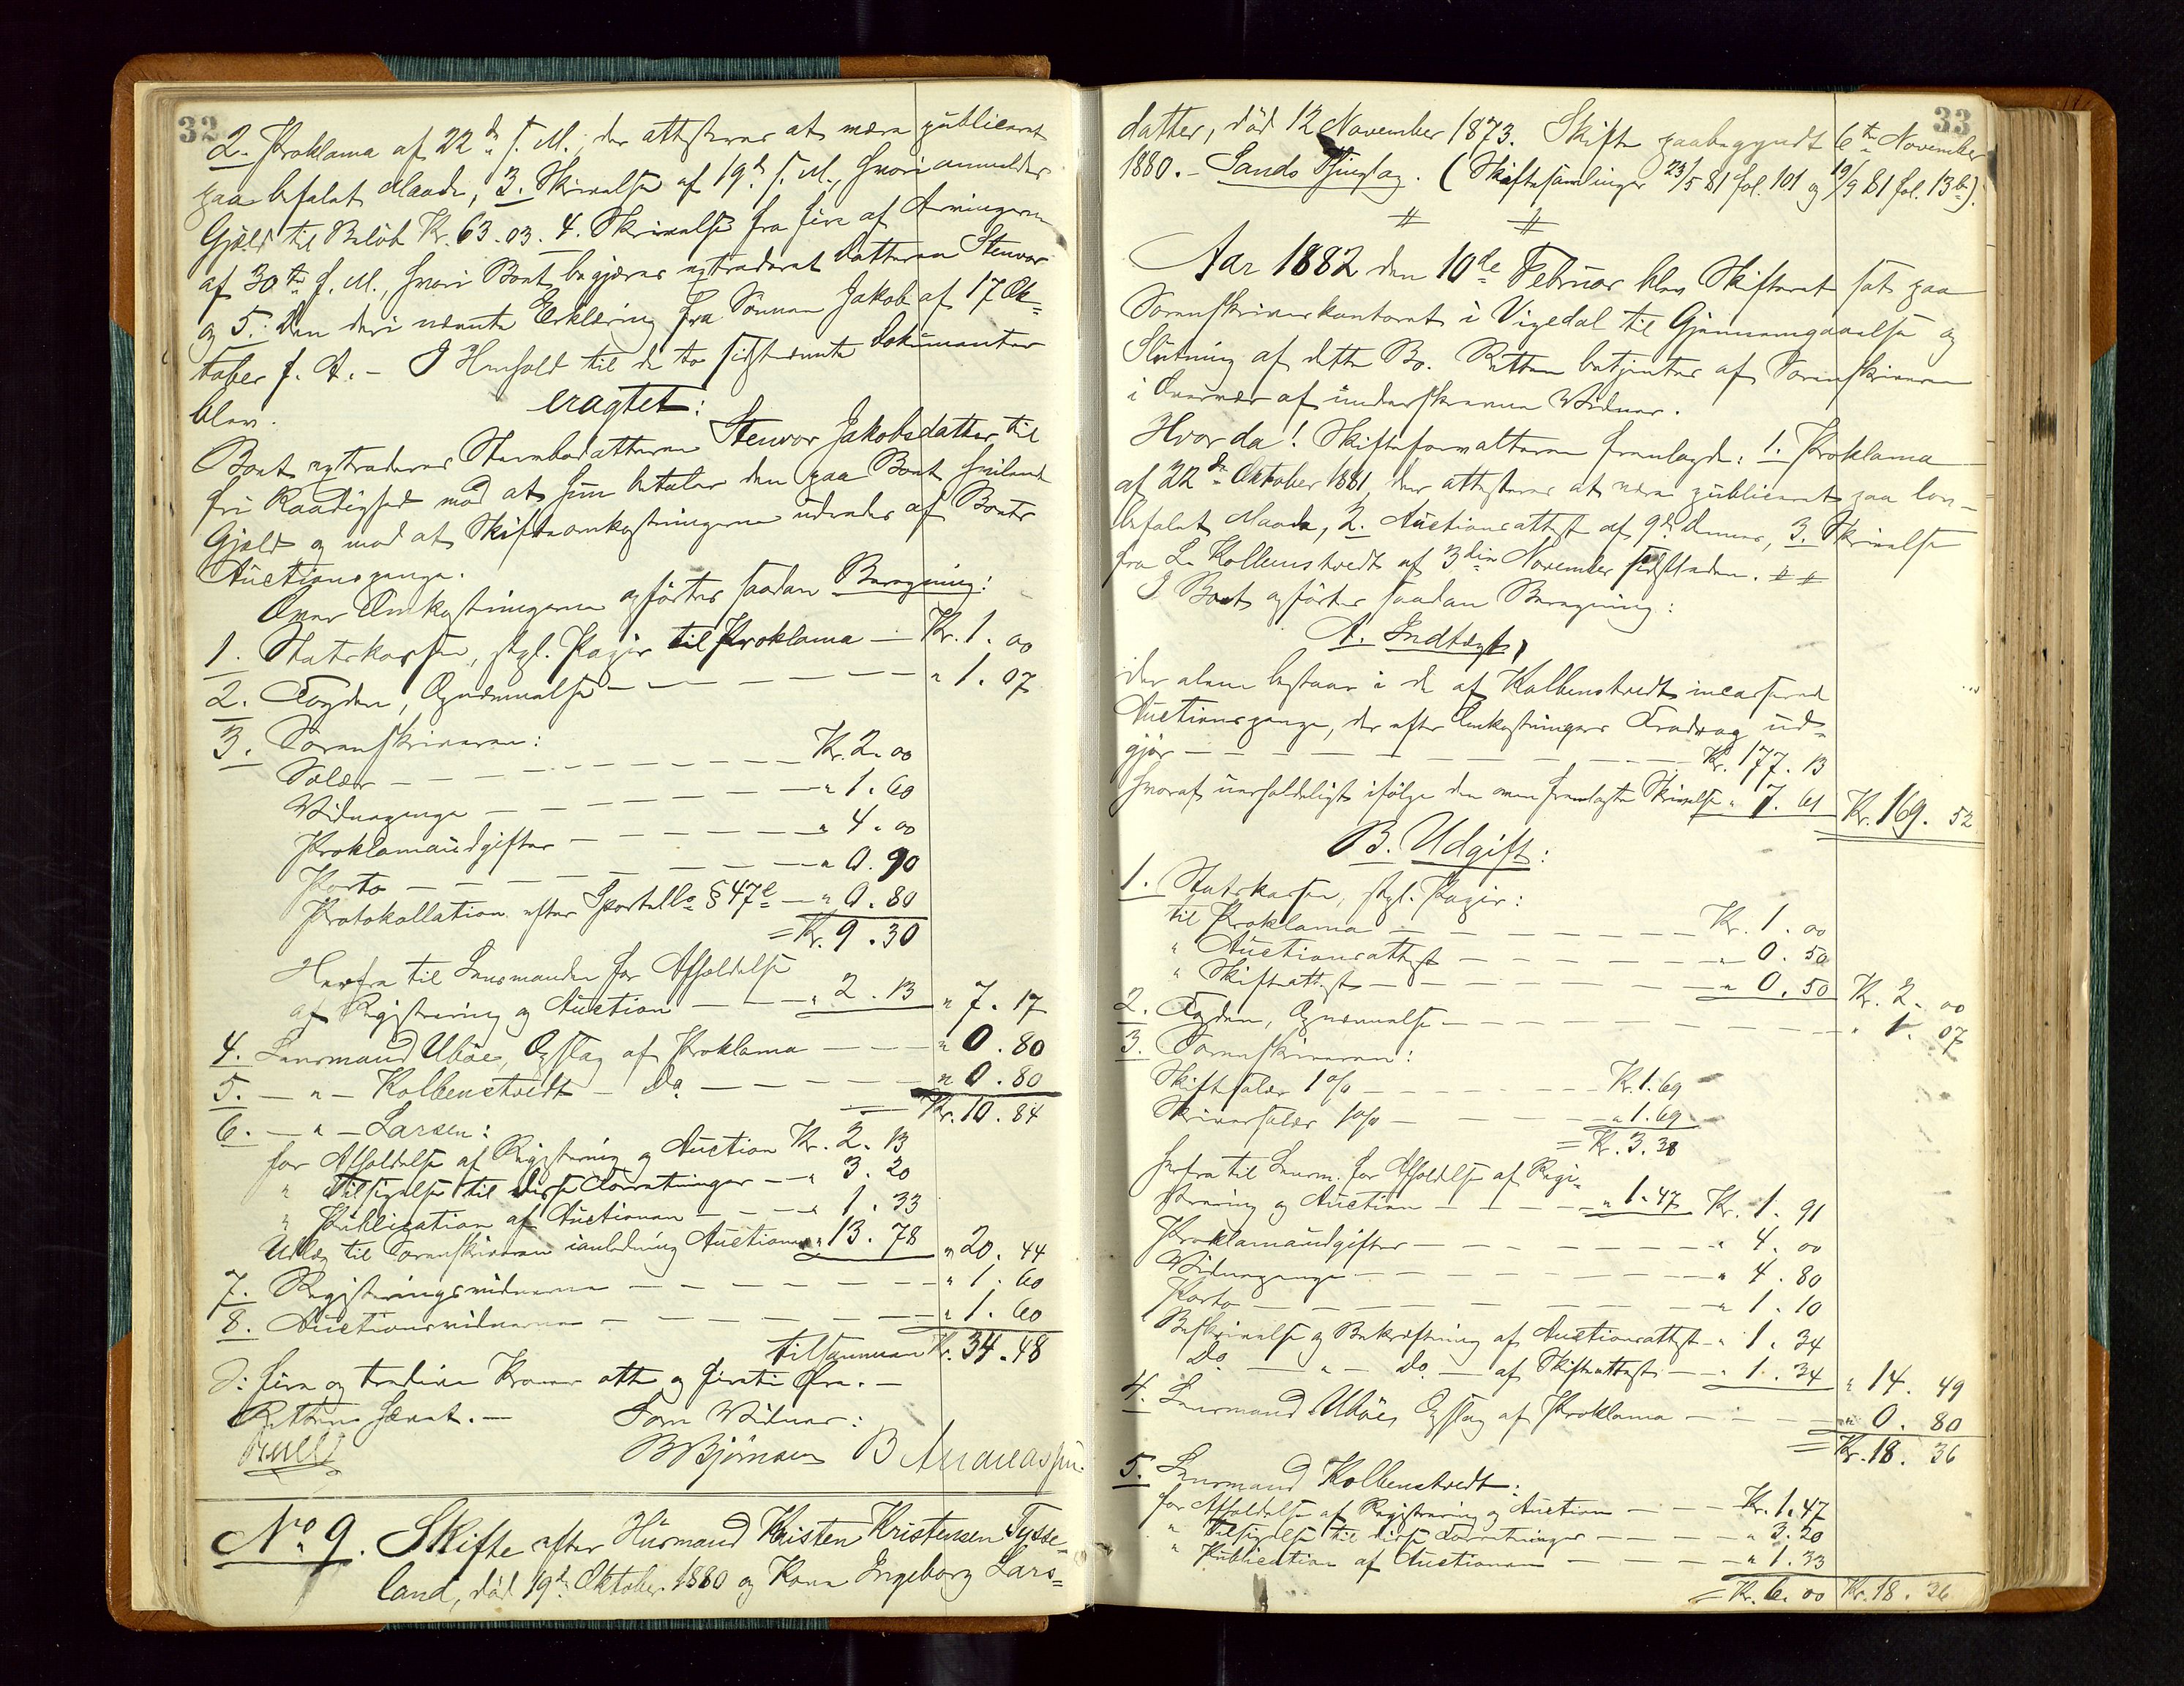 32
2. Proklama af 22de f. M., der attesteres at være publiceret
paa befalet Maade, 3. Skrivelse af 19de f. M., hvori anmeldes
Gjæld til Beløb Kr. 63.03. 4. Skrivelse fra fire af Arvingerne
af 30te f. M., hvori Boet begjæres extraderet Datteren Stenvor
og 5. den deri nævnte Erklæring fra Sønnen Jakob af 17 Ok-
tober f. A. – I Henhold til de to sidstnævnte Dokumenter
blev
eragtet:
Boet extraderes Stervbodatteren Stenvor Jakobsdatter til
fri Raadighed mod at hun betaler den paa Boet hvilende
Gjæld og mod at Skifteomkostningerne udredes af Boets
Auctionspenge.
Over Omkostningerne opførtes saadan Beregning:
1. Statskassen, stpl. Papir til Proklama — Kr. 1.00
2. Fogden, Opnævnelse — " 1.07
3. Sorenskriveren:
Salær — Kr. 2.00
Vidnepenge — " 1.60
Proklamaudgifter — " 4.00
Porto — " 0.90
Protokollation efter Sportell. § 47 — " 0.80
= Kr. 9.30
Herfra til Lensmanden for Afholdelse
af Registrering og Auction — " 2.13 " 7.17
4. Lensmand Ubøe, Opslag af Proklama — " 0.80
5. — " — Kolbenstvedt — Do — " 0.80
= Kr. 10.84
6. — " — Larsen:
for Afholdelse af Registrering og Auction Kr. 2.13
" Tilsigelse til disse Forretninger — " 3.20
" Publication af Auctionen — " 1.33
Udlæg til Sorenskriveren i anledning Auctionen " 13.78 " 20.44
7. Registreringsvidnerne — " 1.60
8. Auctionsvidnerne — " 1.60
tilsammen Kr. 34.48
ɔ: fire og tredive Kroner otte og firti Øre. –
Retten hævet. — Som Vidner:
B Bjørnsen B Andreassen
No 9. Skifte efter Husmand Kristen Kristensen Tysse-
land, død 19de Oktober 1880 og Kone Ingeborg Lars-
33
datter, død 12 November 1873. Skifte paabegyndt 6te November
1880. – Sands Thinglag. (Skiftesamlinger 23/5 81 fol. 101 og 19/9 81 fol. 13b).
Aar 1882 den 10de Februar blev Skifteret sat paa
Sorenskriverkontoret i Vigedal til Gjennemgaaelse og
Slutning af dette Bo. Retten betjentes af Sorenskriveren
i Overvær af underskrevne Vidner.
Hvor da! Skifteforvalteren fremlagde: 1. Proklama
af 22de Oktober 1881, der attesteres at være publiceret paa lov-
befalet Maade, 2. Auctionsattest af 9de dennes, 3. Skrivelse
fra L. Kolbenstvedt af 3die November sidstleden.
I Boet opførtes saadan Beregning:
A. Indtægt,
der alene bestaar i de af Kolbenstvedt incasserede
Auctionspenge, der efter Omkostningers Fradrag ud-
gjør — Kr. 177.13
hvoraf uerholdeligt ifølge den ovenfremlagte Skrivelse " 7.61 Kr. 169.52
B. Udgift:
1. Statskassen, stpl. Papir:
til Proklama — Kr. 1.00
" Auctionsattest — " 0.50
" Skifteattest — " 0.50 Kr. 2.00
2. Fogden, Opnævnelse — " 1.07
3. Sorenskriveren:
Skiftesalær 1% — Kr. 1.69
Skriversalær 1% — " 1.69
= Kr. 3.38
herfra til Lensm. for Afholdelse af Regi-
strering og Auction — " 1.47 Kr. 1.91
Proklamaudgifter — " 4.00
Vidnepenge — " 4.80
Porto — " 1.10
Beskrivelse og Bekræftning af Auctionsattest — " 1.34
Do — " — Do — af Skifteattest — " 1.34 " 14.49
4. Lensmand Ubøe, Opslag af Proklama — " 0.80
= Kr. 18.36
5. Lensmand Kolbenstvedt:
for Afholdelse af Registrering og Auction — Kr. 1.47
" Tilsigelse til disse Forretninger — " 3.20
" Publication af Auctionen — " 1.33
= Kr. 6.00 Kr. 18.36